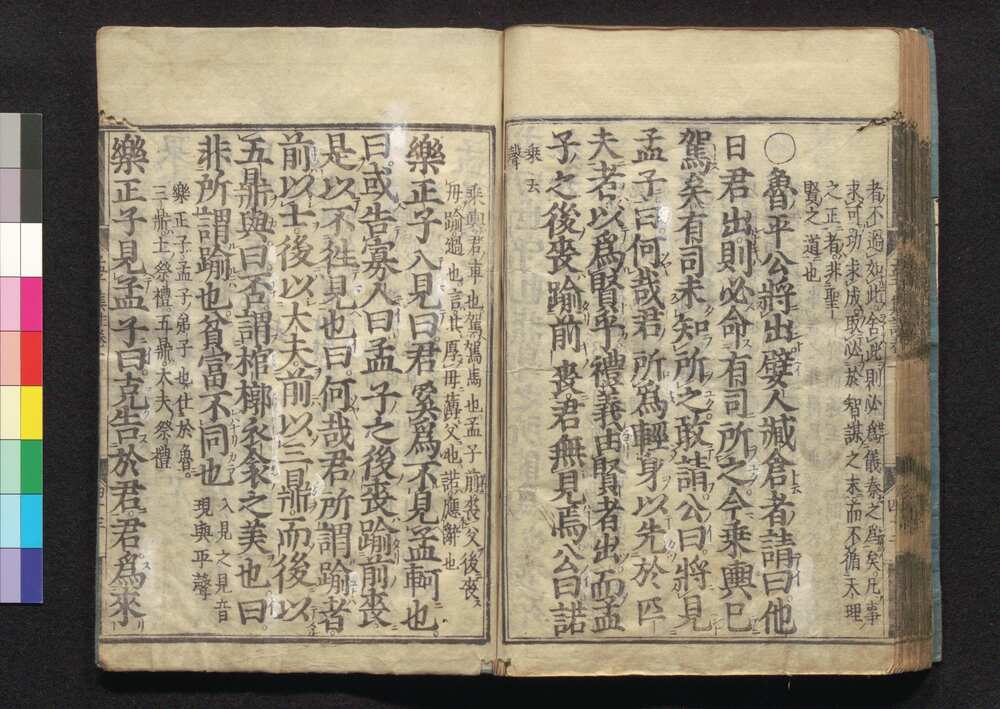 者不過如此舍此則必爲儀秦之爲矣凡事
求可功求成取必於智謀之末而不循天理
之正者非聖
賢之道也
○魯平公將出嬖人臧倉者請曰他
日君出則必命有司所之今乘輿巳
駕矣有司未知所之敢請公曰將見
孟子曰何哉君所爲輕身以先於匹
夫者以爲賢乎禮義由賢者出而孟
子之後喪踰前喪君無見焉公曰諾
乘去
聲
乘輿君車也駕駕馬也孟子前喪父後喪
母踰過也言其厚母薄父也諾應辭也
樂正子入見曰君奚爲不見孟軻也
曰或告寡人曰孟子之後喪踰前喪
是以不往見也曰何哉君所謂踰者
前以士後以大夫前以三鼎而後以
五鼎與曰否謂棺槨衣衾之美也曰
非所謂踰也貧富不同也
入見之見音
現與平聲
樂正子孟子弟子也仕於魯
三鼎士祭禮五鼎大夫祭禮
樂正子見孟子曰克告於君君爲來